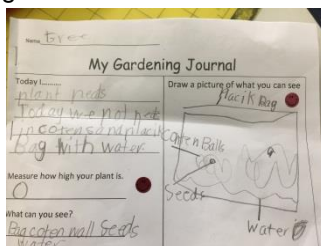 Name Bree
My Gardening Journal
Today I........
plant peds
Today we plot peds
in cotensand placik
Bag with water.
Measure how high your plant is.
0
What can you see?
Bag coten nall Seeds
water
Draw a picture of what you can see
Placik Bag
Coten Balls
Seeds
Water